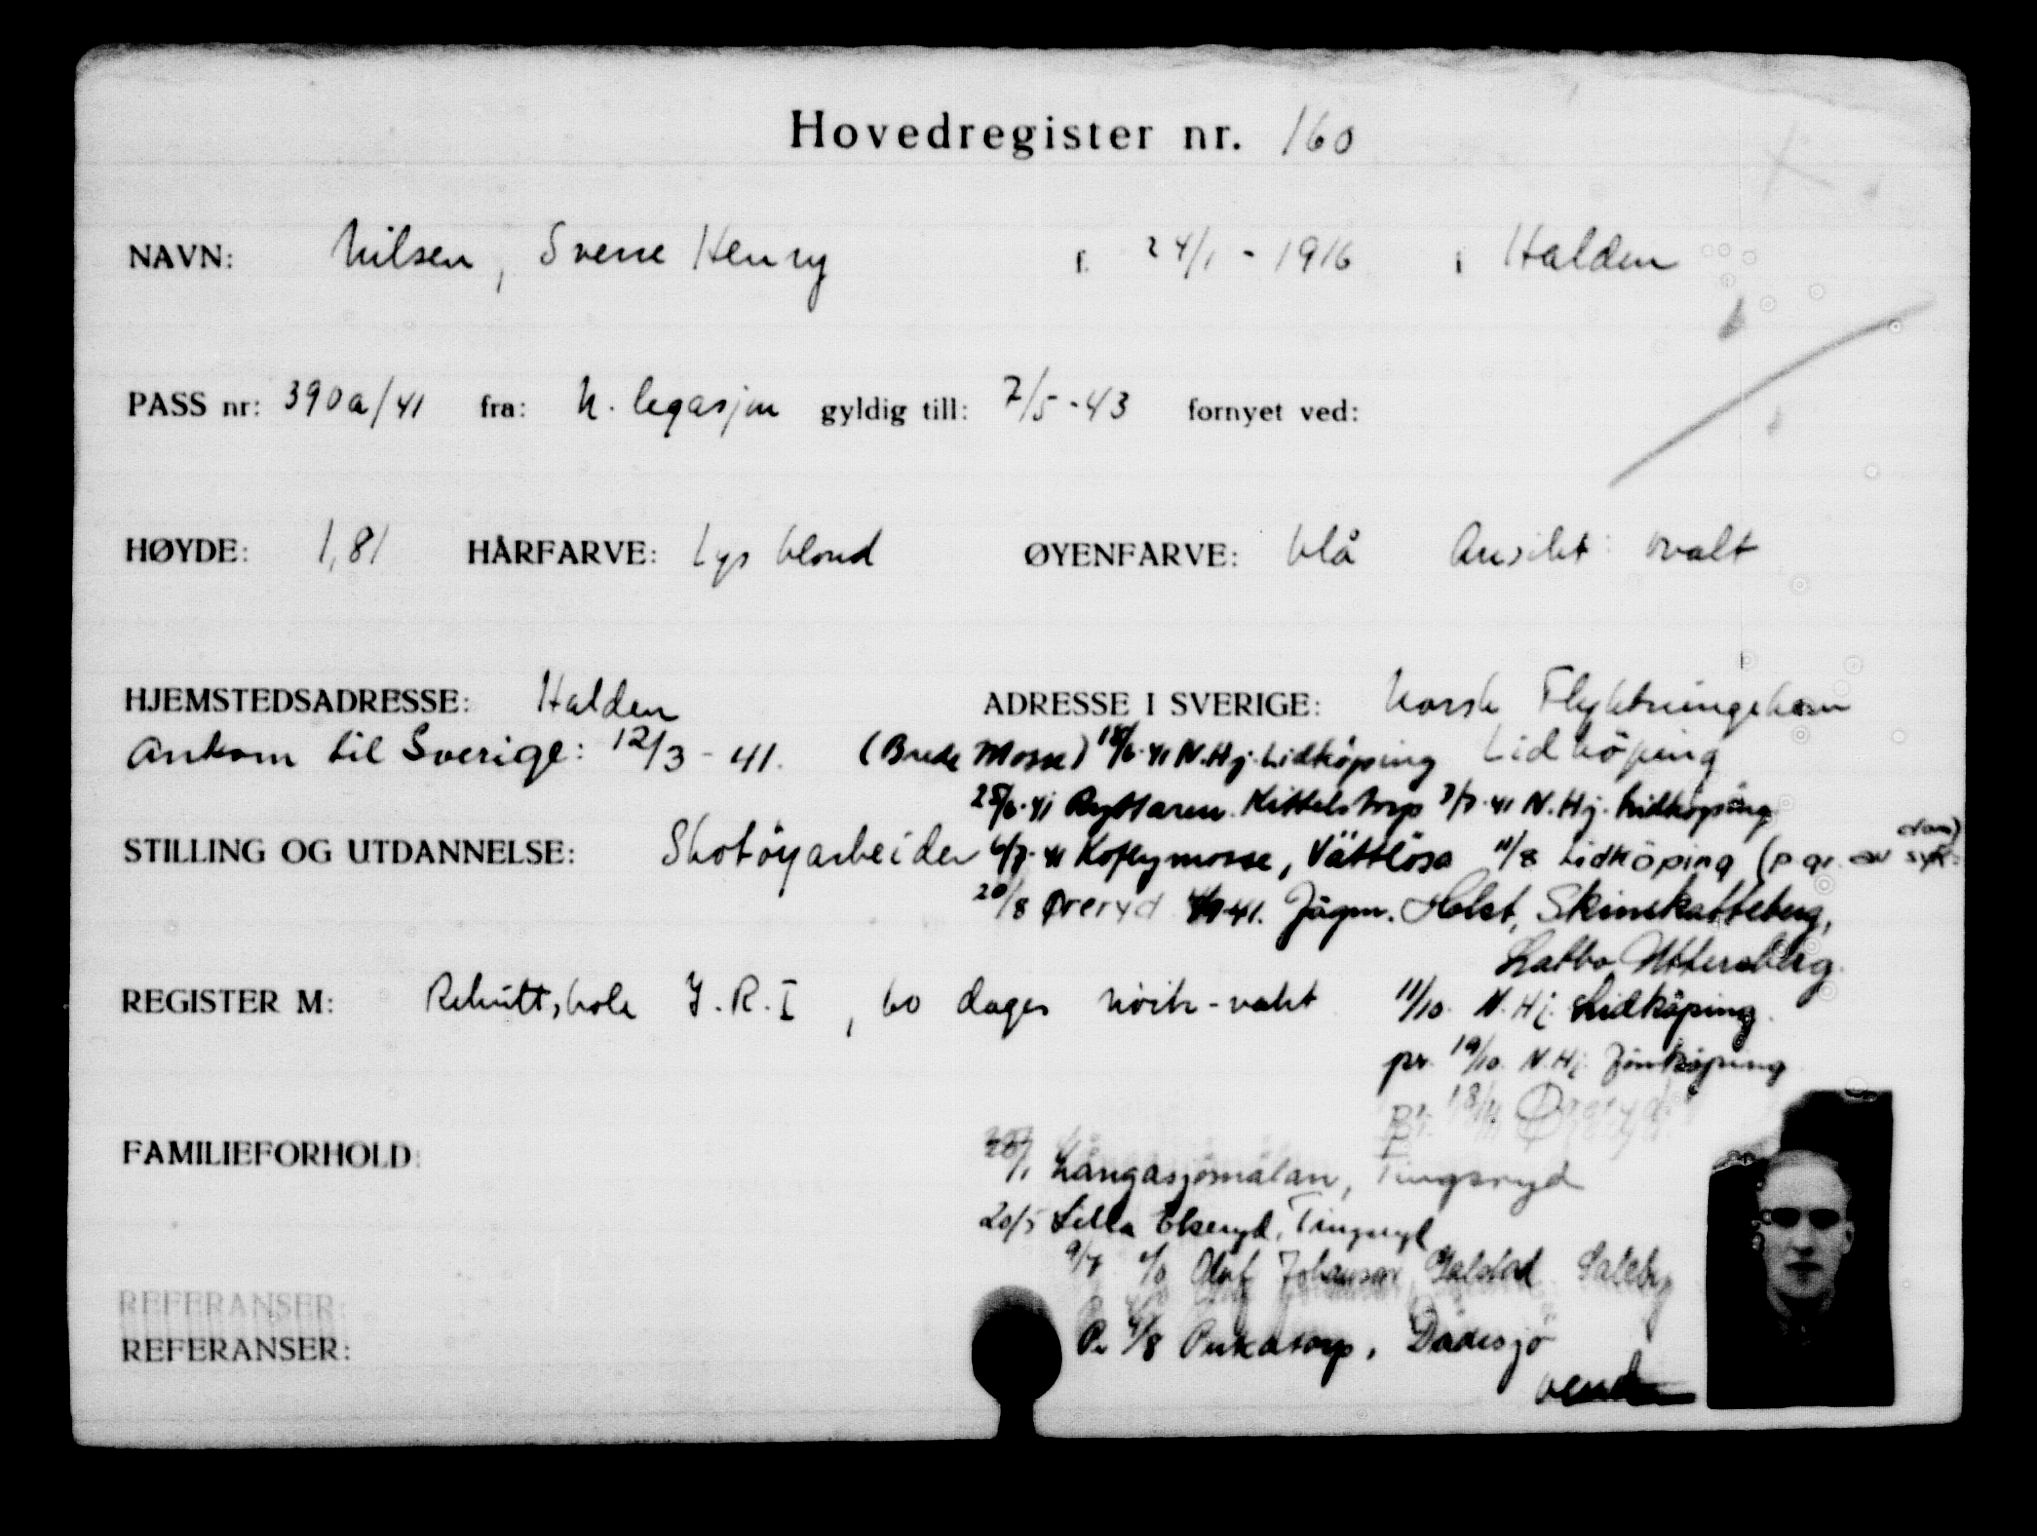 Hovedregister nr. 160
NAVN: Nilsen, Sverre Henry f. 24/1 - 1916 i Halden
PASS nr: 390a/41 fra: N. legasjon gyldig till: 7/5 - 43 fornyet ved:
HØYDE: 1,81 HÅRFARVE: Lys blond ØYENFARVE: blå Ansikt: ovalt
HJEMSTEDSADRESSE: Halden ADRESSE I SVERIGE: Norsk Flyktningehem
Ankom til Sverige: 12/3 - 41. (Brede Mosse) 18/6-41 N.Hj. Lidköping Lidköping
25/6-41 Ryttaren. Kittelstorp 3/7-41 N.Hj. Lidköping
STILLING OG UTDANNELSE: Skotöyarbeider 6/7-41 Mosse, Vättlösa 11/8 Lidköping (p. gr. av syk-dom)
20/8 Øreryd 41. Jägm. Holst, Skinskatteberg,
Uttersberg.
REGISTER M: Rekruttskole I.R.I, 60 dager nöitr-vakt 11/10. N.Hj. Lidköping.
pr. 19/10. N.Hj. Jönköping
Pr. 18/11 Øreryd
FAMILIEFORHOLD: Långasjömålan, Tingsryd
20/5 Lilla Ekeryd, Tingsryd
9/7 c/o Olof Johansson, Saleby
REFERANSER:
REFERANSER: Pr 4/8 Pukatorp, Dädesjö
vend